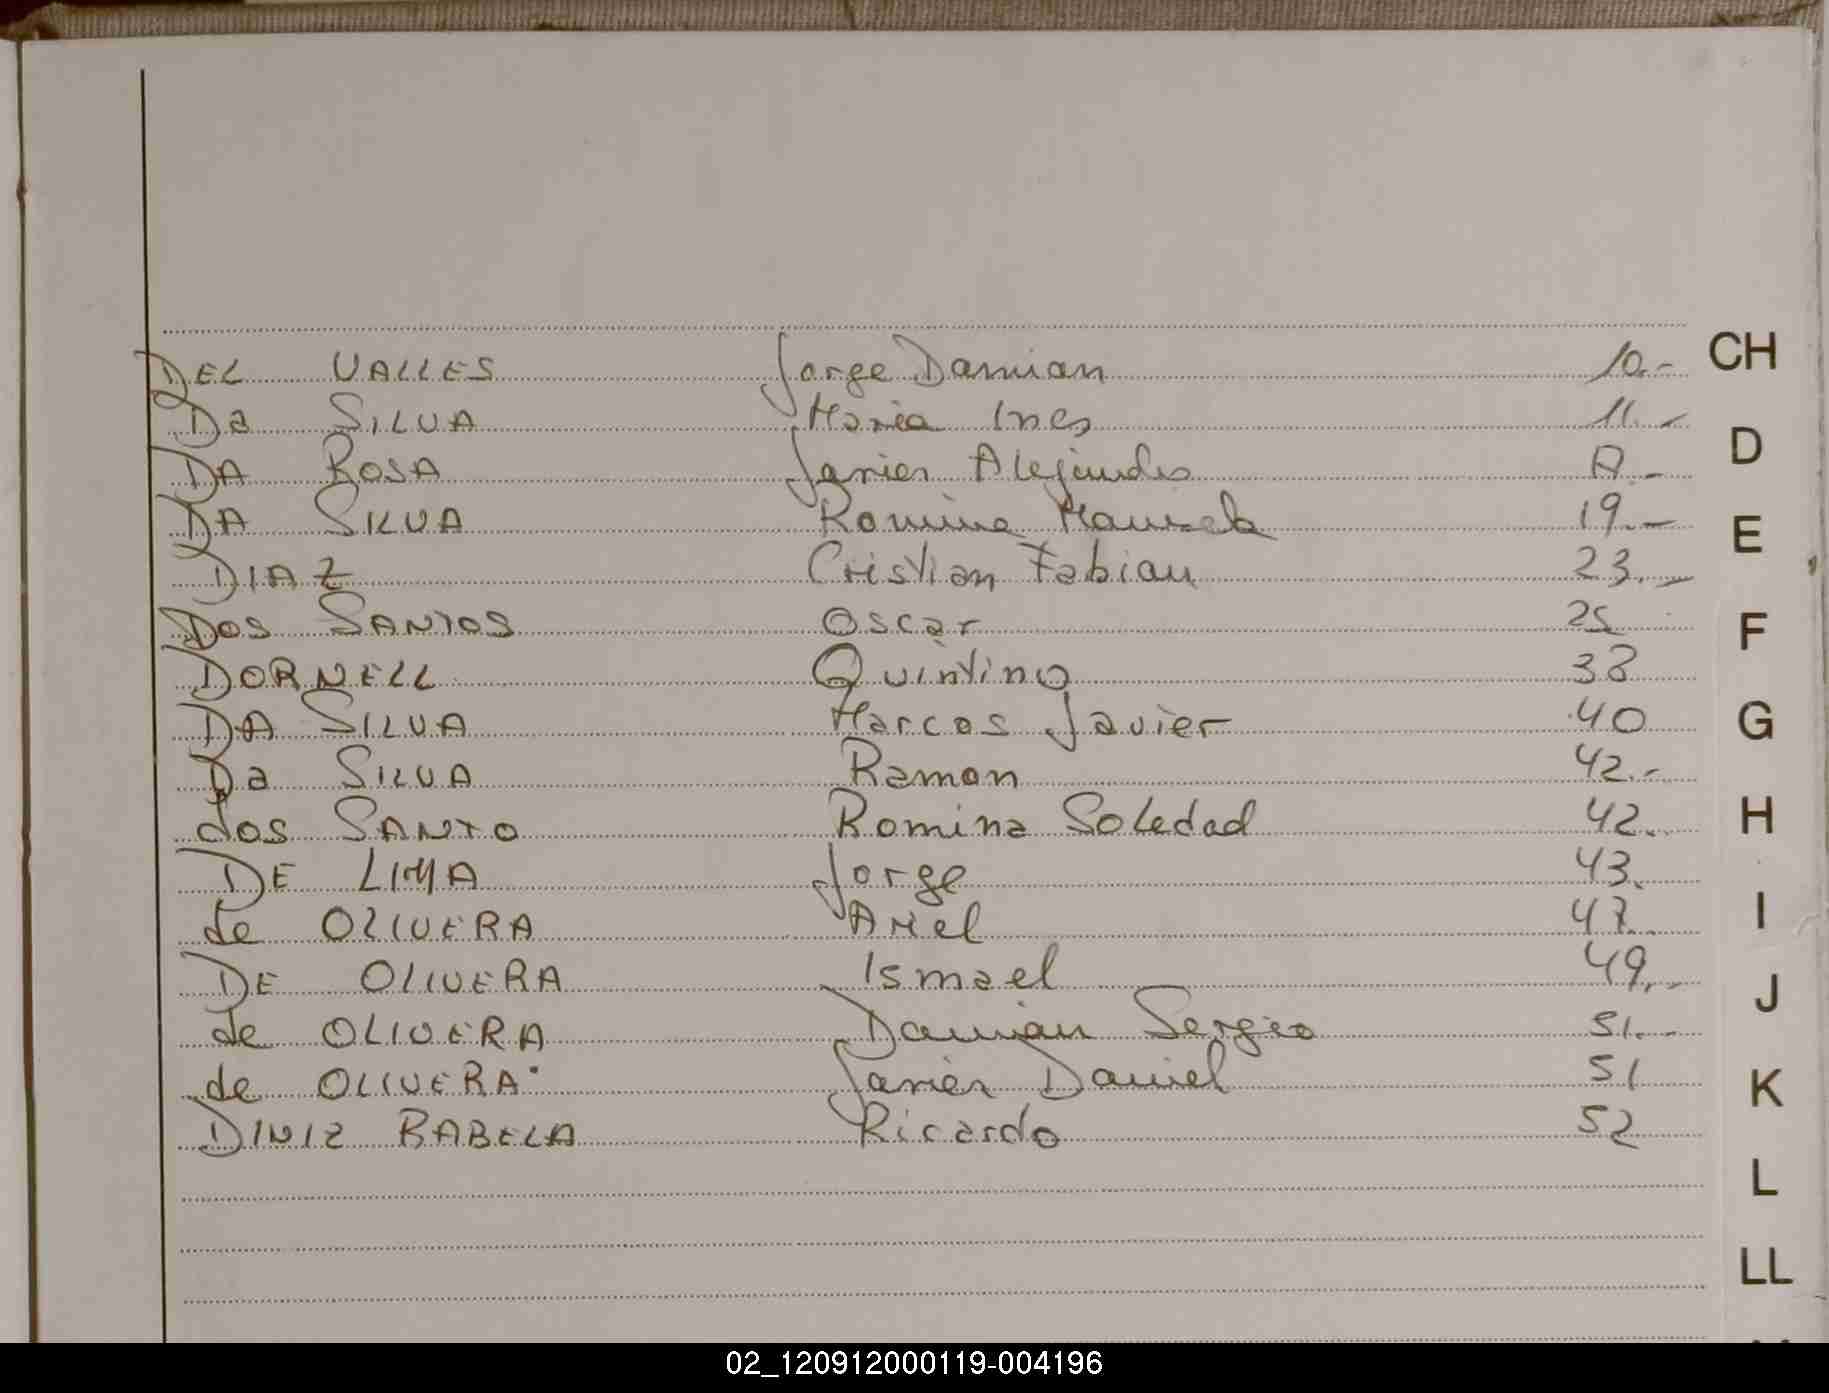 DEL VALLES Jorge Damian 10.-
CH
Da SILVA Maria Ines 11.-
D
DA ROSA Javier Alejandro
DA SILVA Romina Marisela 19.-
E
DIAZ Cristian Fabian 23.-
DOS SANTOS Oscar 25
F
DORNELL Quintino 38
DA SILVA Marcos Javier 40
G
Da SILVA Ramon 42.-
dos SANTO Romina Soledad 42.
H
DE LIMA Jorge 43.
de OLIVERA Ariel 47.
I
DE OLIVERA Ismael 49.-
J
de OLIVERA Damian Sergio 51.-
de OLIVERA Javier Daniel 51
K
DINIZ RABELA Ricardo 52
L
LL
02_120912000119-004196